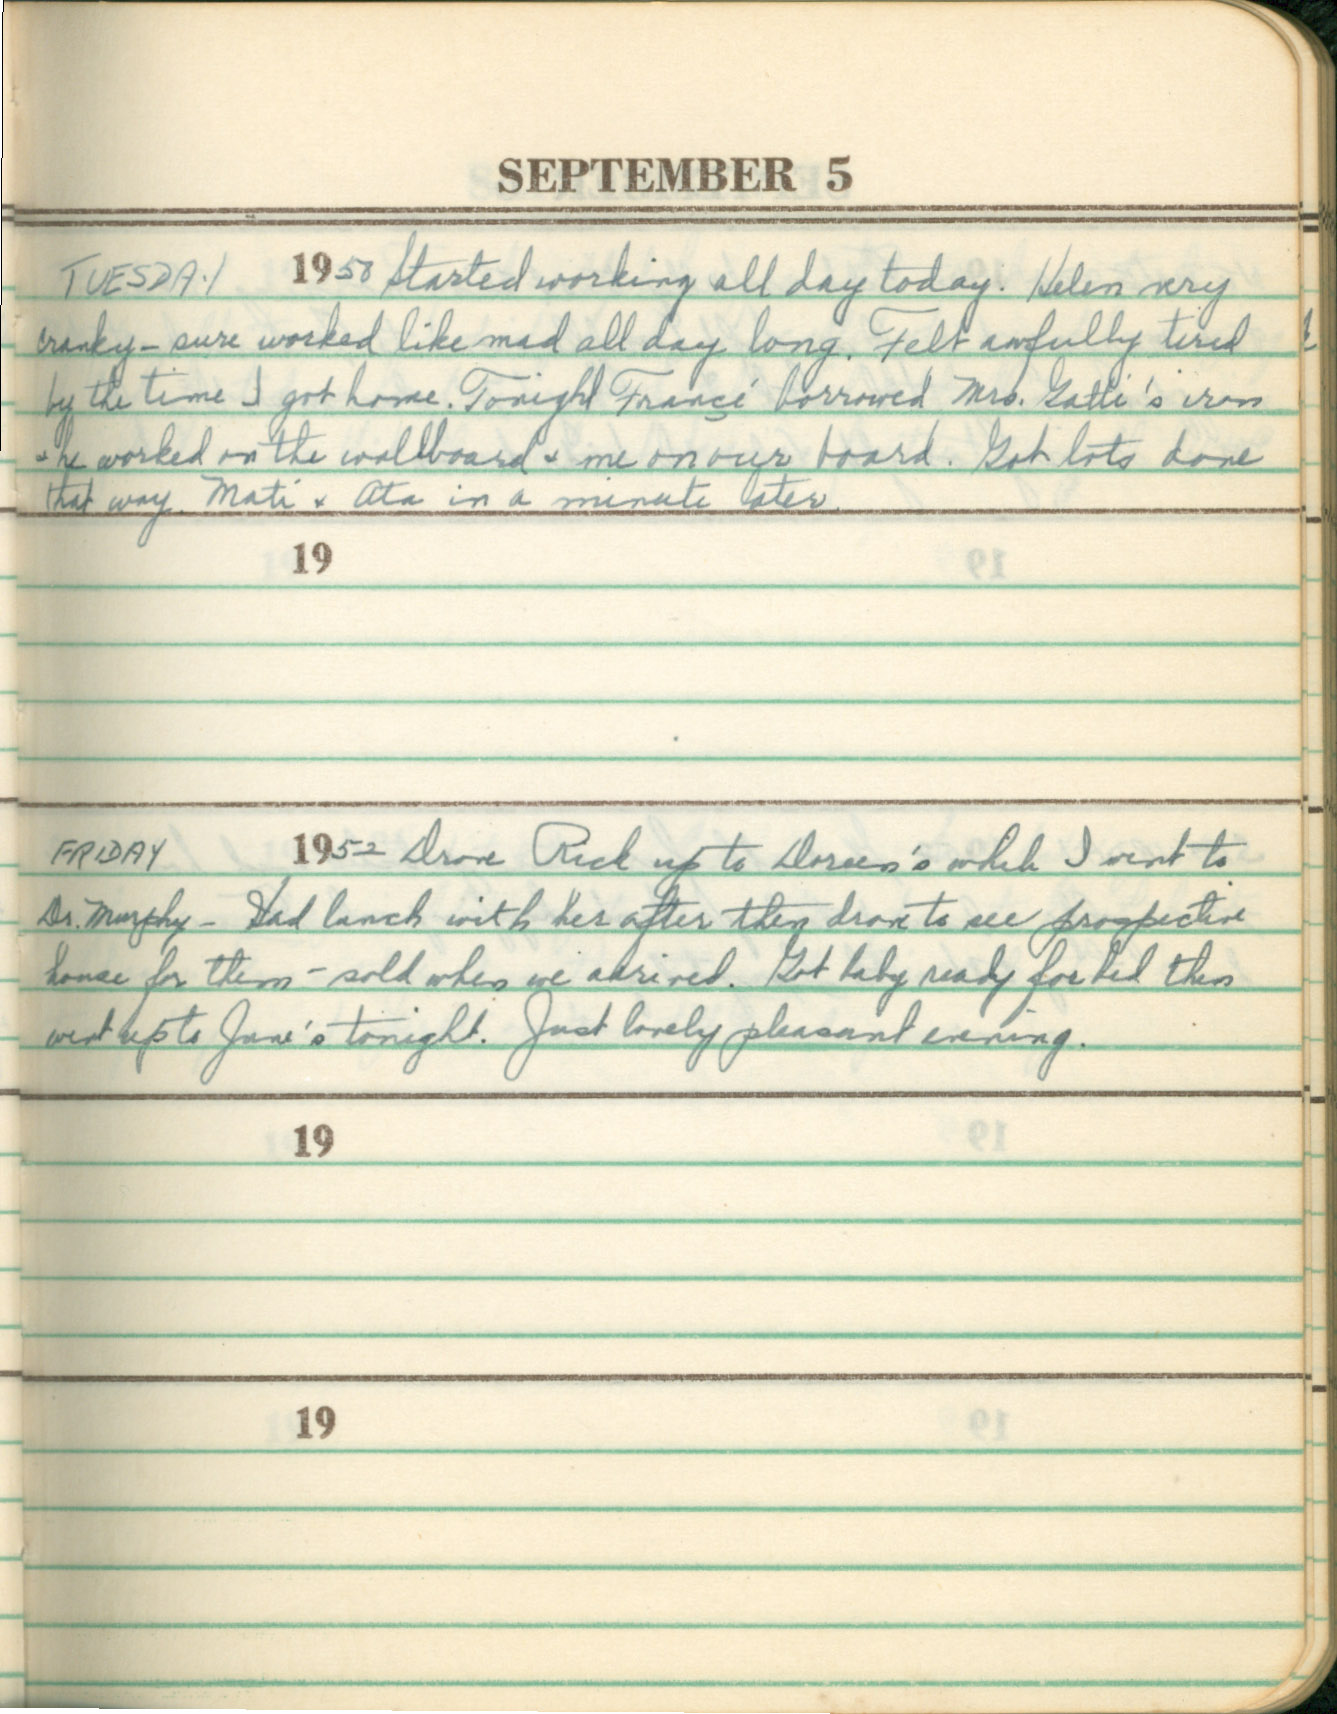 SEPTEMBER 5
TUESDAY 1950 Started working all day today. Helen very
cranky - sure worked like mad all day long. Felt awfully tired
by the time I got home. Tonight Francé borrowed Mrs. Gatti's iron
& he worked on the wallboard & me on our board. Got lots done
that way. Mati & Ata in a minute later.
19
FRIDAY 1952 Drove Rick up to Doreen's while I went to
Dr. Murphy - Had lunch with her after then drove to see prospective
house for them - sold when we arrived. Got baby ready for bed then
went up to June's tonight. Just lovely pleasant evening.
19
19